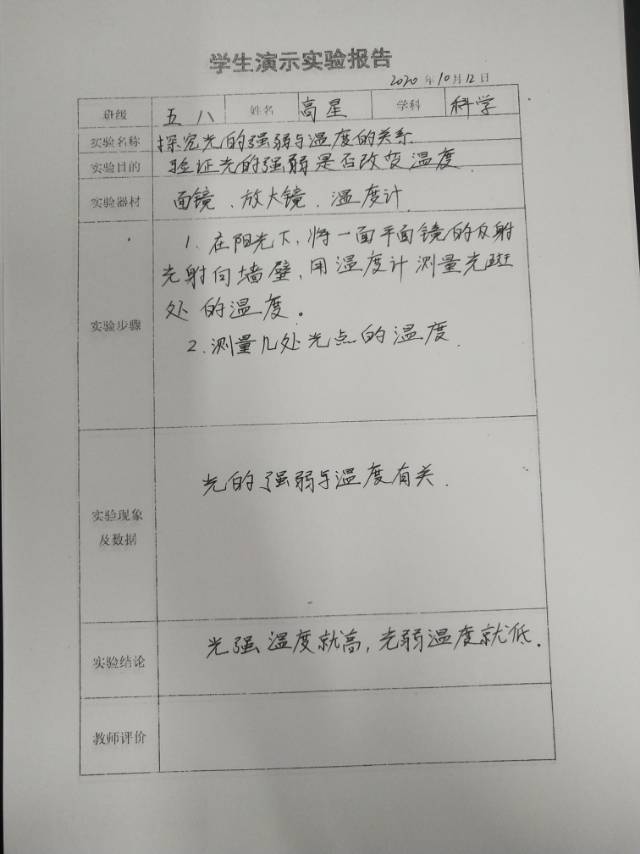 学生演示实验报告
2020年10月12日
班级 五八 姓名 高星 学科 科学
实验名称 探究光的强弱与温度的关系.
实验目的 验证光的强弱是否改变温度
实验器材 面镜、放大镜、温度计.
实验步骤
1. 在阳光下,将一面平面镜的反射
光射向墙壁,用温度计测量光斑
处的温度。
2. 测量几处光点的温度.
实验现象
及数据
光的强弱与温度有关.
实验结论 光强温度就高,光弱温度就低.
教师评价